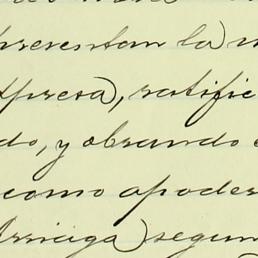 presentan la
xpresa), ratific
do, y obrando
como apoder
Arriaga) segun